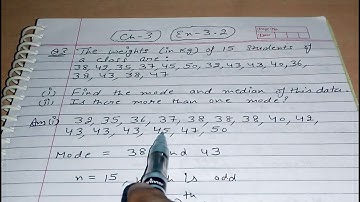 Ch-3 Ex-3.2
Q3 The weights (in kg) of 15 students of
a class are:
38, 42, 35, 37, 45, 50, 32, 43, 43, 40, 36,
38, 43, 38, 47
(i) Find the mode and median of this data.
(ii) Is there more than one mode?
Ans(i) 32, 35, 36, 37, 38, 38, 38, 40, 42,
43, 43, 43, 45, 47, 50
Mode = 38 and 43
n = 15 is odd
th